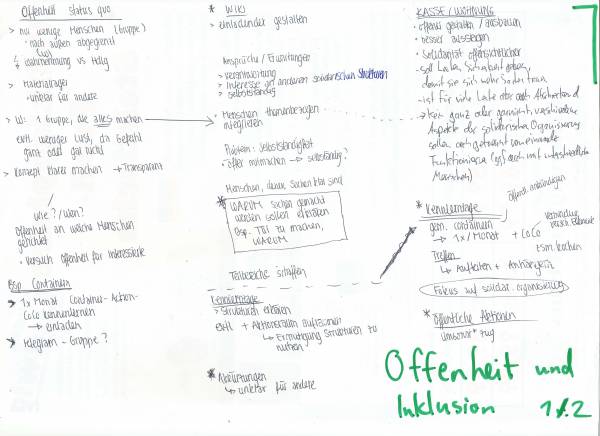 Offenheit status quo
> nur wenige Menschen (Gruppe)
• nach außen abgegrenzt
wahrnehmung vs Hdlg
> Materiallager
• unklar für andere
> Wi: 1 Gruppe, die alles machen
evtl. weniger Lust, da Gefühl
ganz oder gar nicht
> Konzept klarer machen → Transparent
wie? / wen?
Offenheit an welche Menschen
gerichtet
• Versuch Offenheit für Interessierte
Bsp. Containern
* > 1x Monat Container-Action-
CoCo kennenlernen
→ einladen
* > telegram-Gruppe?
* WIKI
> einladender gestalten
Ansprüche / Erwartungen
> verantwortung
> Interesse an anderen solidarischen Strukturen
> selbstständig
• Menschen themenbezogen
integrieren
Problem: Selbstständigkeit
• öfter mitmachen → selbständig?
Menschen, denen Sachen klar sind
* WARUM Sachen gemacht
werden sollen erklären
Bsp. Tür zu machen,
WARUM
Teilbereiche schaffen
Kennlerntage
> Strukturen erklären
evtl + Aktionsraum
→ Ermutigung Strukturen zu
nutzen!
* Abkürzungen
→ unklar für andere
KASSE / WOHNUNG
• offener gestalten / ausbauen
• besser aussteigen
• Solidarität offensichtlicher
- soll Leuten Sicherheit geben,
damit sie sich mehr
- ist für viele Leute aber auch Abschreckend
> kein ganz oder garnicht, verschiedene
Aspekte der solidarische Organisierung
sollen auch getrennt voneinander
Funktionieren (ggf auch mit unterschiedlichen
Menschen)
öffentl. ankündigen
* Kennlerntage
gem. containern
→ 1x/Monat + CoCo
+ sm. kochen
Treffen
→ Aufkleben + Anhängern
Fokus auf solidar. organisierung
* öffentliche Aktionen
Umsonst*zug
Offenheit und
Inklusion 1/2